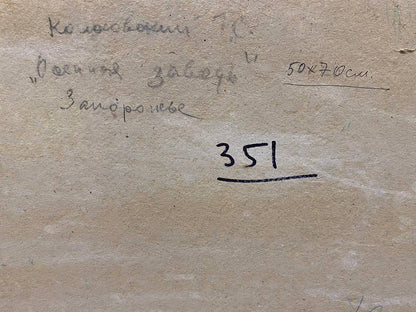 Колосовский Г.С.
„Осенняя заводь"
50х70см.
Запорожье
351